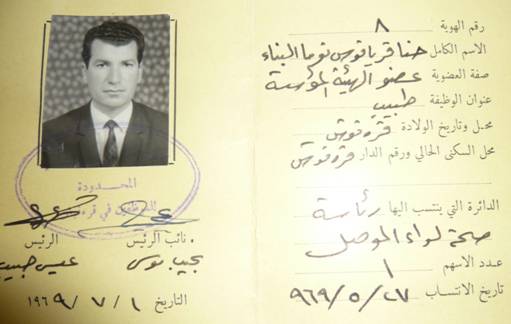 رقم الهوية ٨
الاسم الكامل حنا قرياقوس توما البناء
صفة العضوية عضو الهيئة المؤسسة
عنوان الوظيفة طبيب
محل وتاريخ الولادة قره قوش
محل السكنى الحالي ورقم الدار قره قوش
الدائرة التي ينتسب اليها رئاسة
صحة لواء الموصل
عدد الاسهم ١
تاريخ الانتساب ٩٦٩/٥/٢٧
المحدودة
في قره
نائب الرئيس الرئيس
نجيب موسى عيسى حبيب
التاريخ ١٩٦٩/٧/١